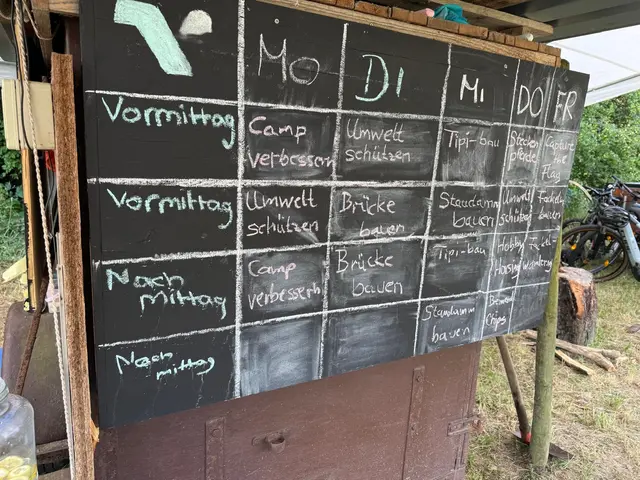 MO DI Mi DO FR
Vormittag
Camp
verbessern
Umwelt
schützen
Tipi-bau
Stecken
pferde
Capture
the
Flag
Vormittag
Umwelt
schützen
Brücke
bauen
Staudamm
bauen
Umwelt
schützen
Fackeln
bauen
Nach
mittag
Camp
verbessern
Brücke
bauen
Tipi-bau
Hobby
Horsing
Nach
mittag
Staudamm
bauen
Chips